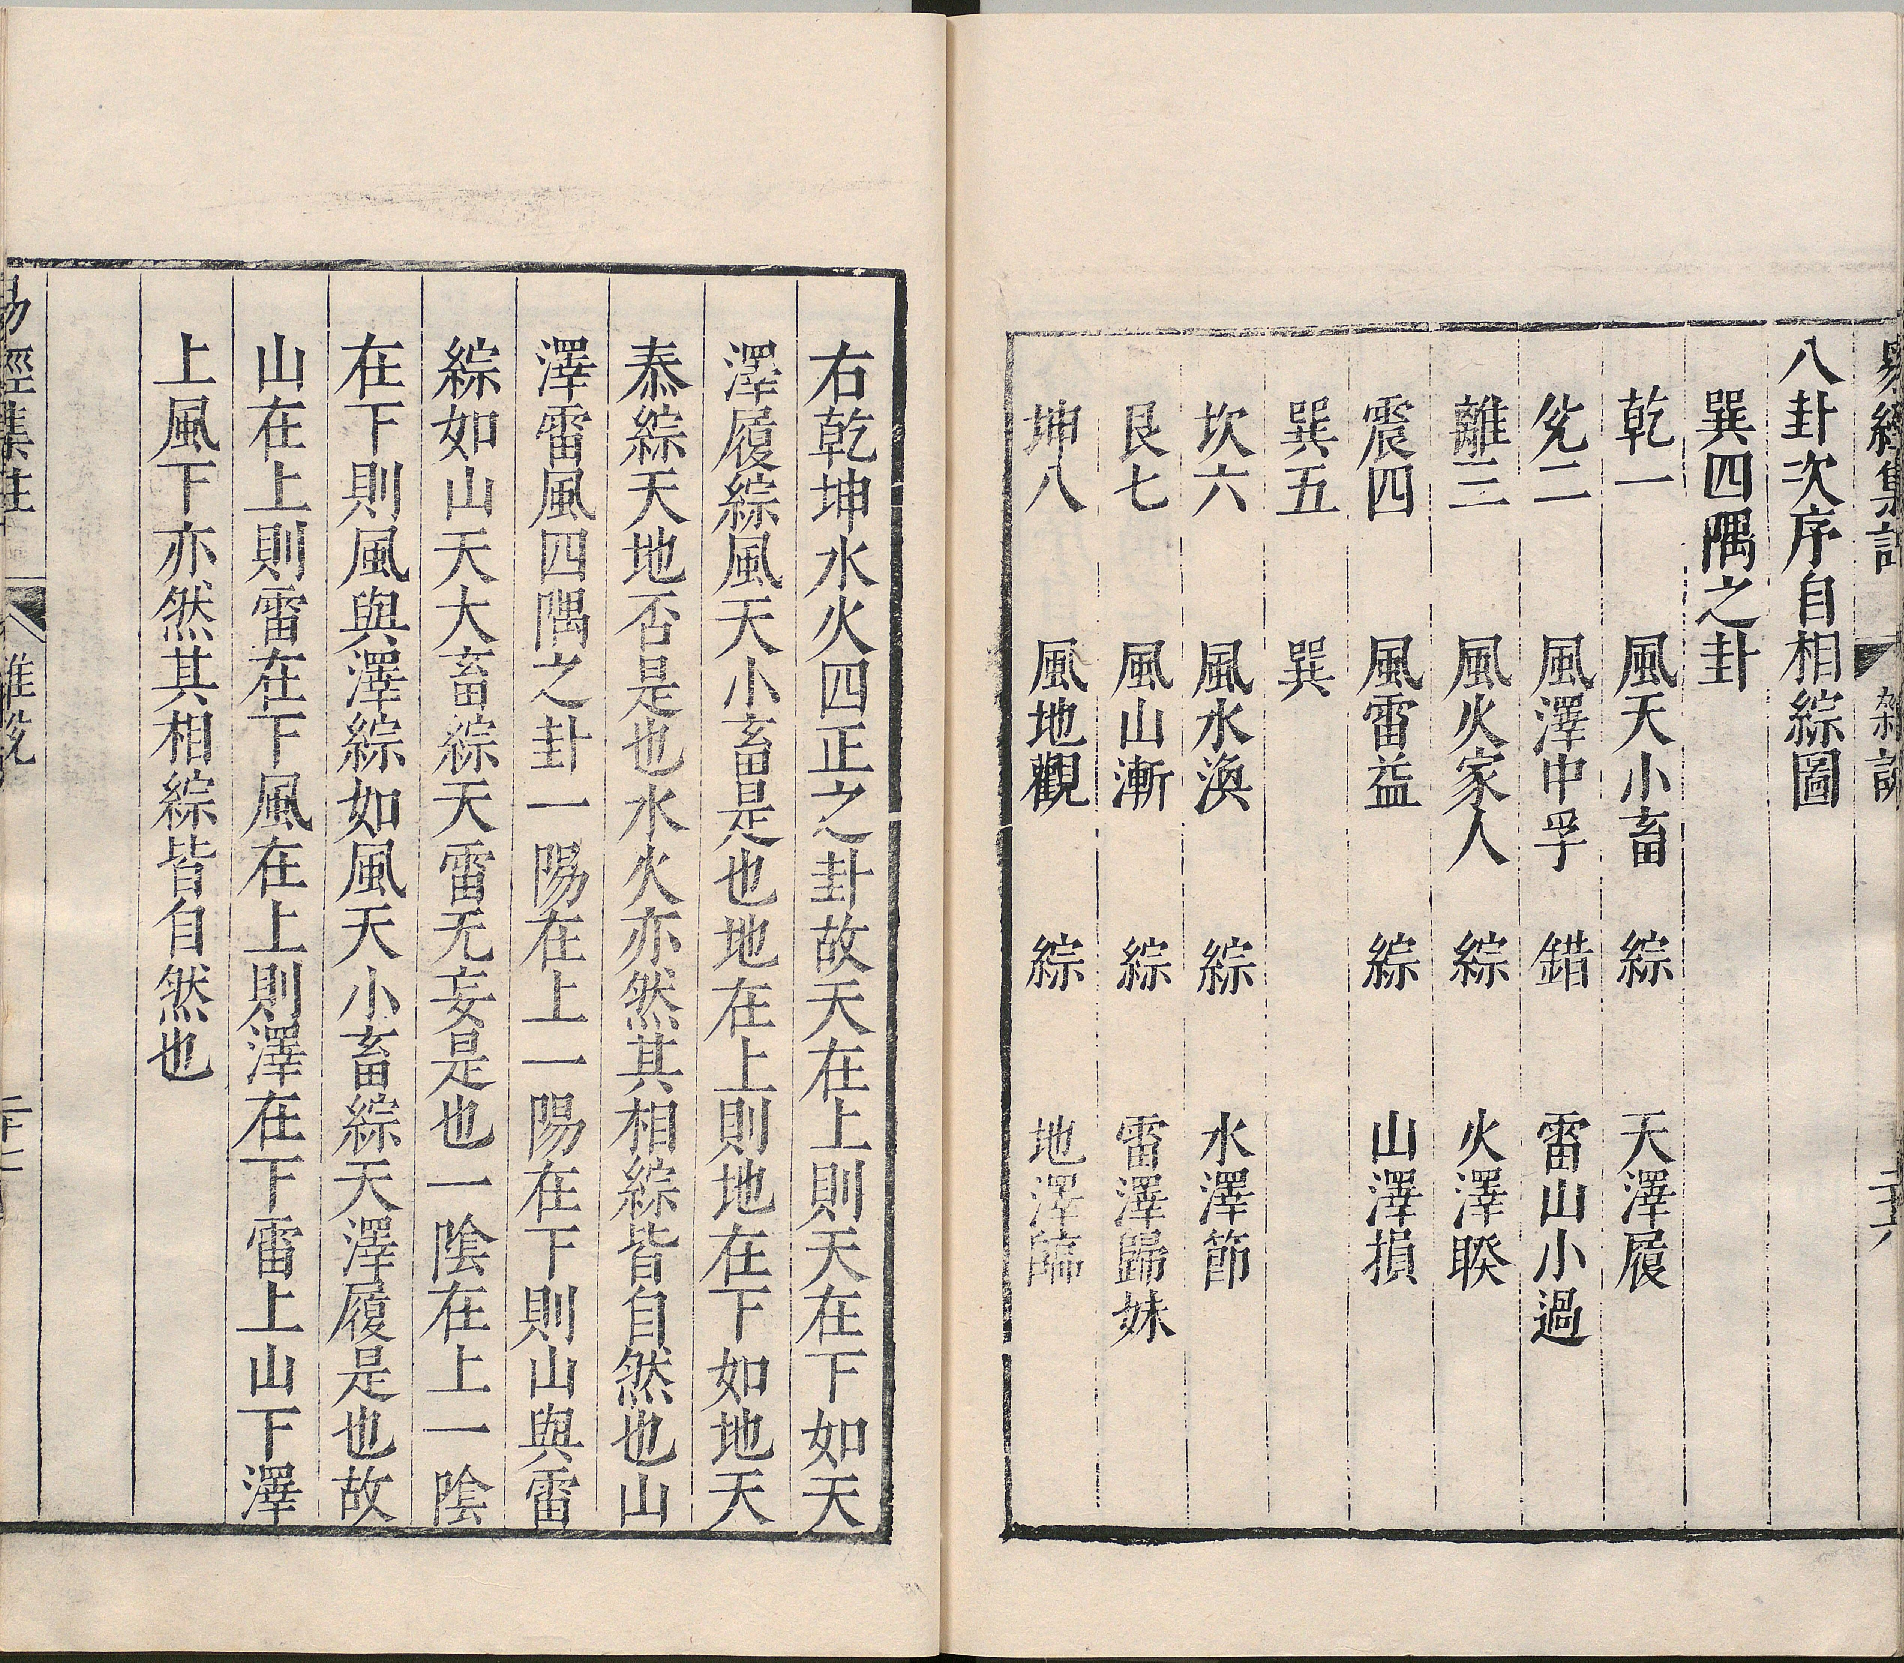 易經集註 雜說 二十六
八卦次序自相綜圖
巽四隅之卦
乾一 風天小畜 綜 天澤履
兌二 風澤中孚 錯 雷山小過
離三 風火家人 綜 火澤睽
震四 風雷益 綜 山澤損
巽五 巽
坎六 風水渙 綜 水澤節
艮七 風山漸 綜 雷澤歸妹
坤八 風地觀 綜 地澤臨
右乾坤水火四正之卦故天在上則天在下如天
澤履綜風天小畜是也地在上則地在下如地天
泰綜天地否是也水火亦然其相綜皆自然也山
澤雷風四隅之卦一陽在上一陽在下則山與雷
綜如山天大畜綜天雷无妄是也一陰在上一陰
在下則風與澤綜如風天小畜綜天澤履是也故
山在上則雷在下風在上則澤在下雷上山下澤
上風下亦然其相綜皆自然也
易經集註 雜說